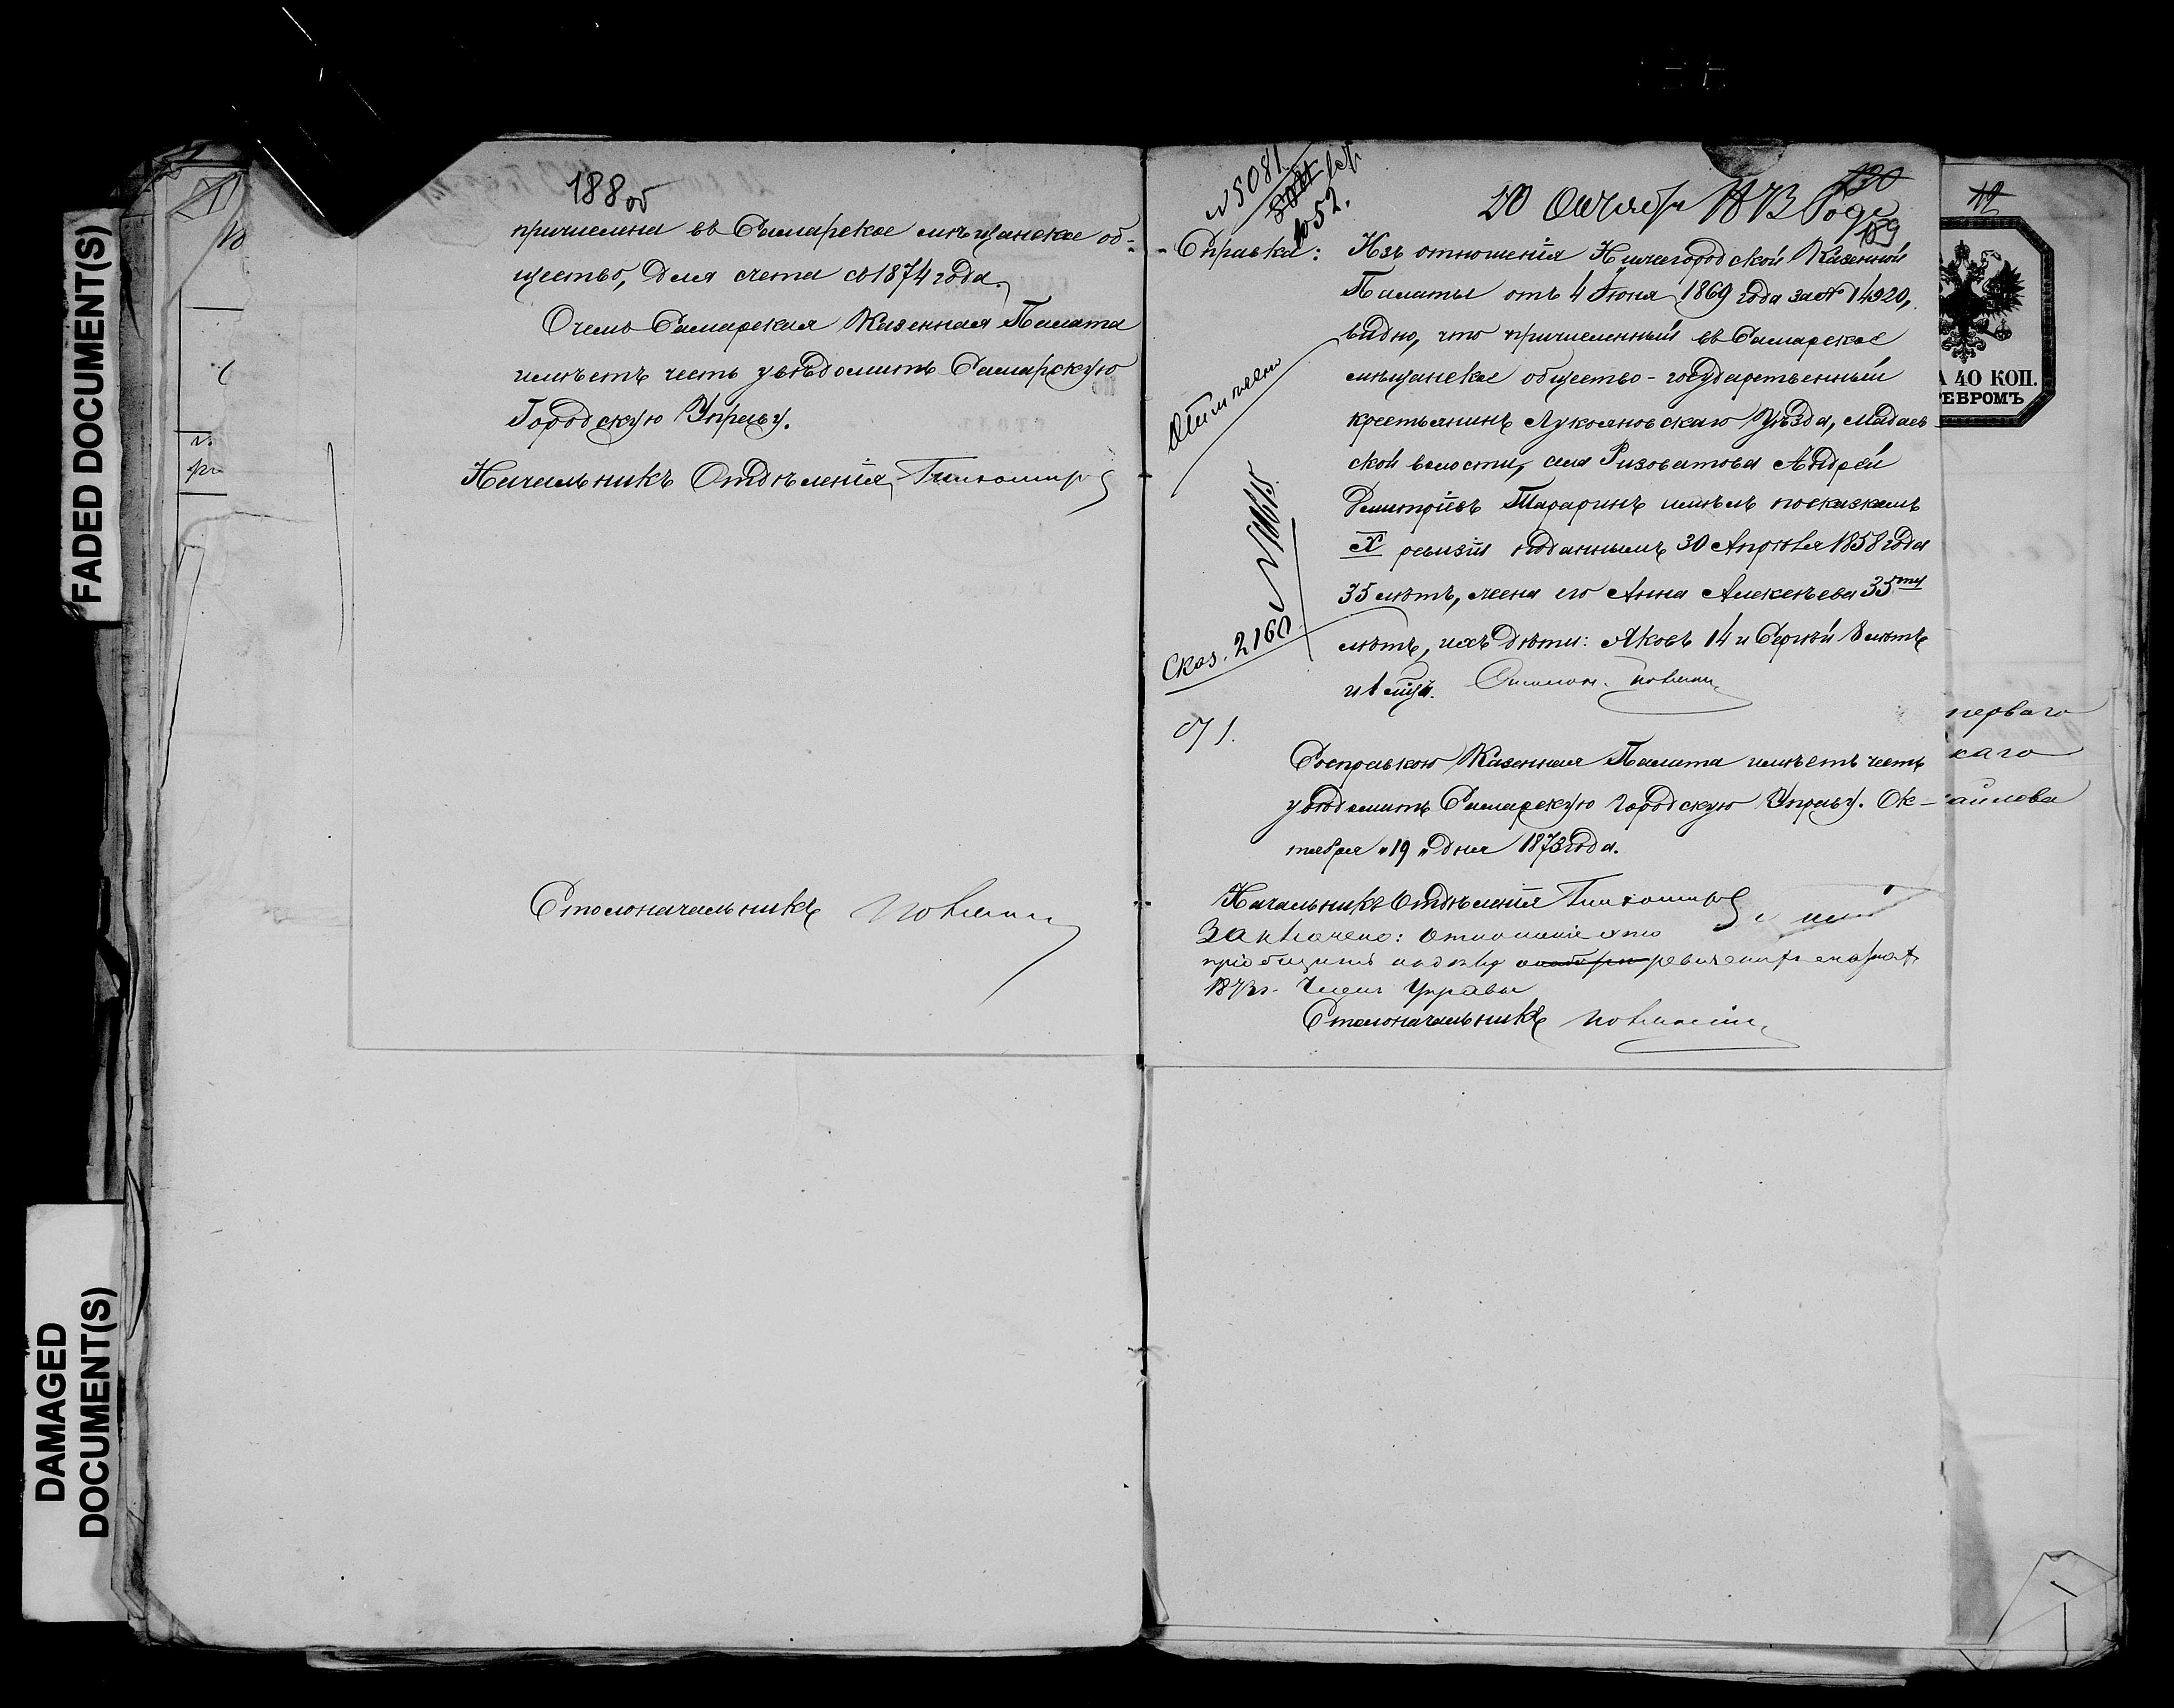 FADED DOCUMENT(S)
DAMAGED
DOCUMENT(S)
188 об
причислена въ Самарское мѣщанское об-
щество, для счета съ 1874 года.
О чемъ Самарская Казенная Палата
имѣетъ честь увѣдомить Самарскую
Городскую Управу.
Начальникъ Отдѣленія Тихомировъ
Столоначальникъ
№ 5081
1052.
20 Октября 1873 Года
189
Справка: Изъ отношенія Нижегородской Казенной
Палаты отъ 4 Іюня 1869 года за № 14920,
видно, что причисленный въ Самарское
мѣщанское общество - государственный
крестьянинъ Лукояновскаго Уѣзда, Мадаев-
ской волости, села Ризоватова Андрей
Дмитріевъ Тараринъ имѣлъ по сказкамъ
X ревизіи поданнымъ 30 Апрѣля 1858 года
35 лѣтъ, жена его Анна Алексѣева 35ти
лѣтъ, ихъ дѣти: Яковъ 14 и Сергѣй 8 лѣтъ
Отмѣчено
Сказ. 2160
Со справкою Казенная Палата имѣетъ честь
увѣдомить Самарскую Городскую Управу. Ок-
тября "19" дня 1873 года.
Начальникъ Отдѣленія Тихомировъ
Заключено: отношеніе это
пріобщить къ дѣлу
1873 г. Членъ Управы
Столоначальникъ
А 40 КОП.
РЕБРОМЪ
перваго
каго
аилова